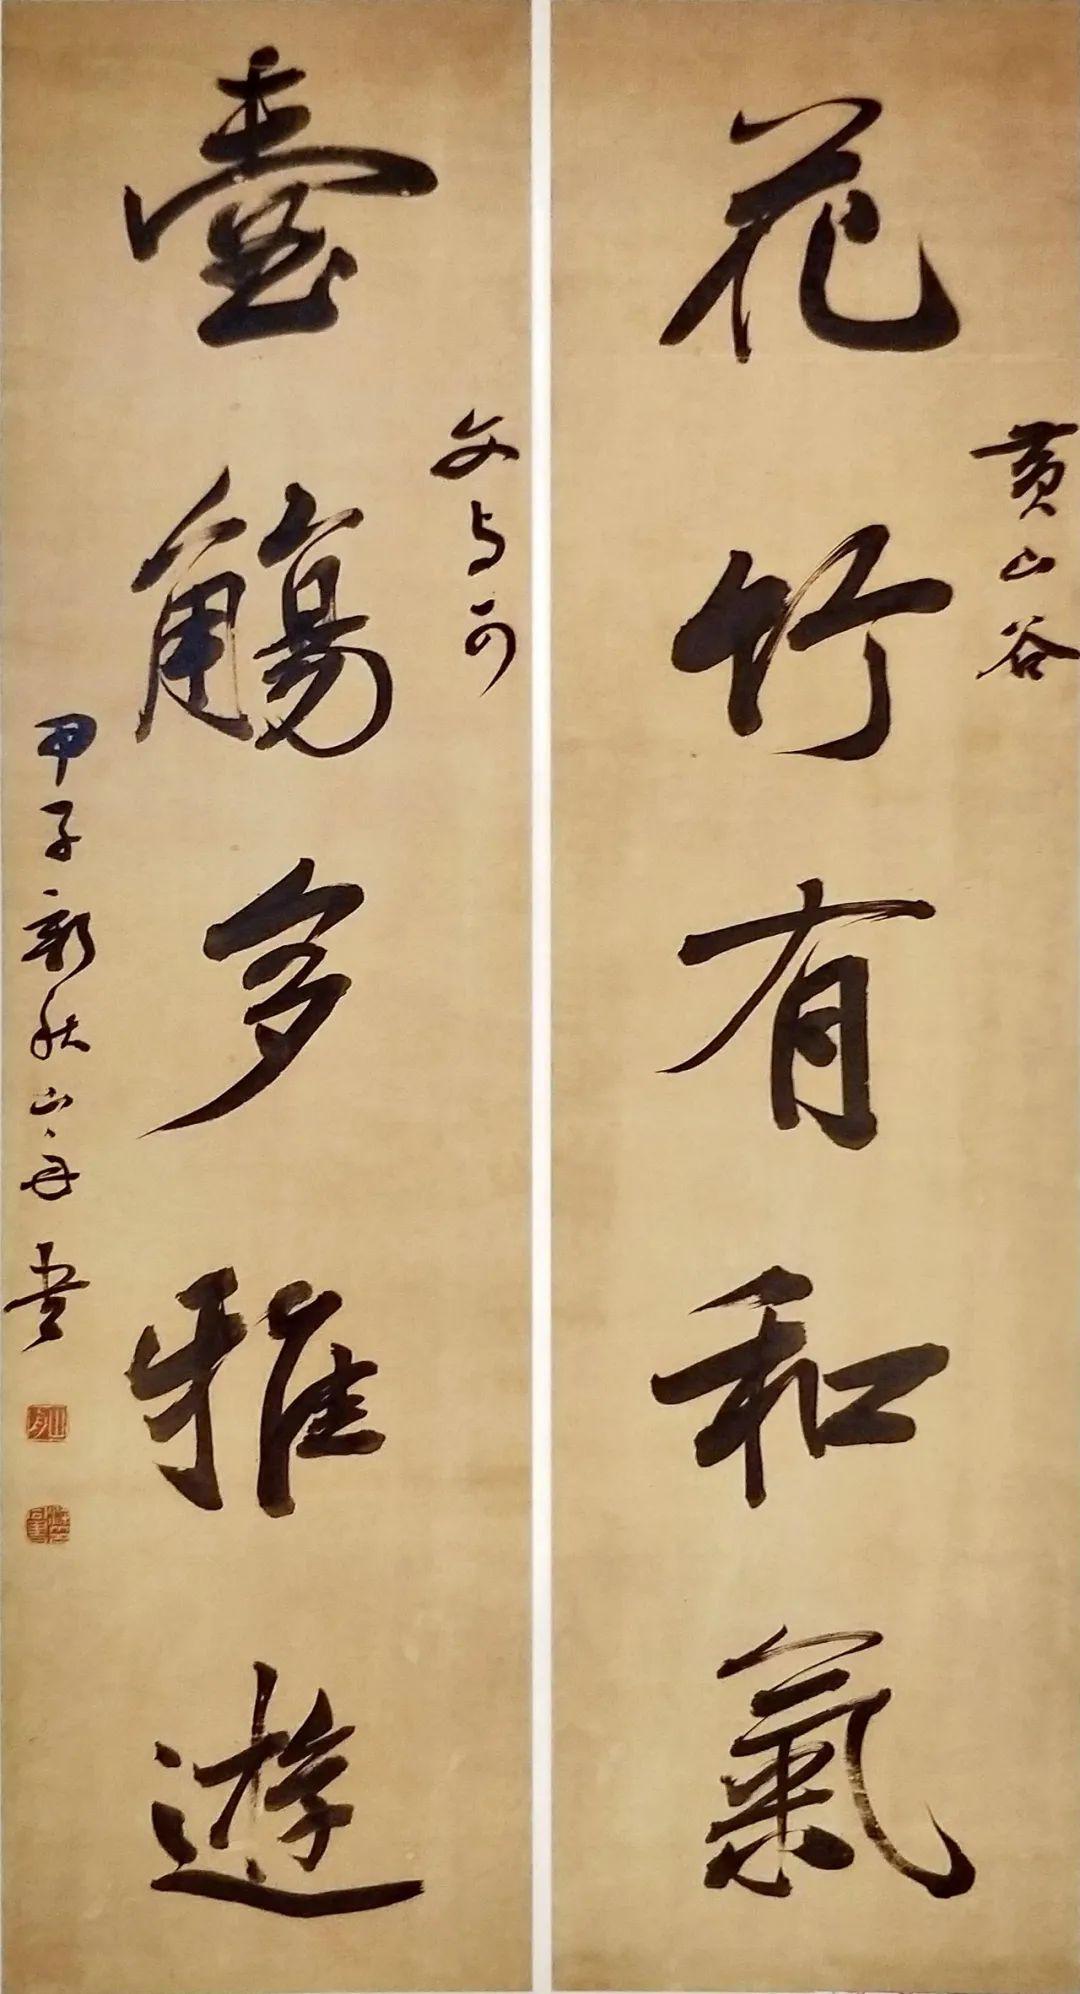 花竹有和氣
黃山谷
壺觴多雅遊
文与可
甲子新秋山舟書